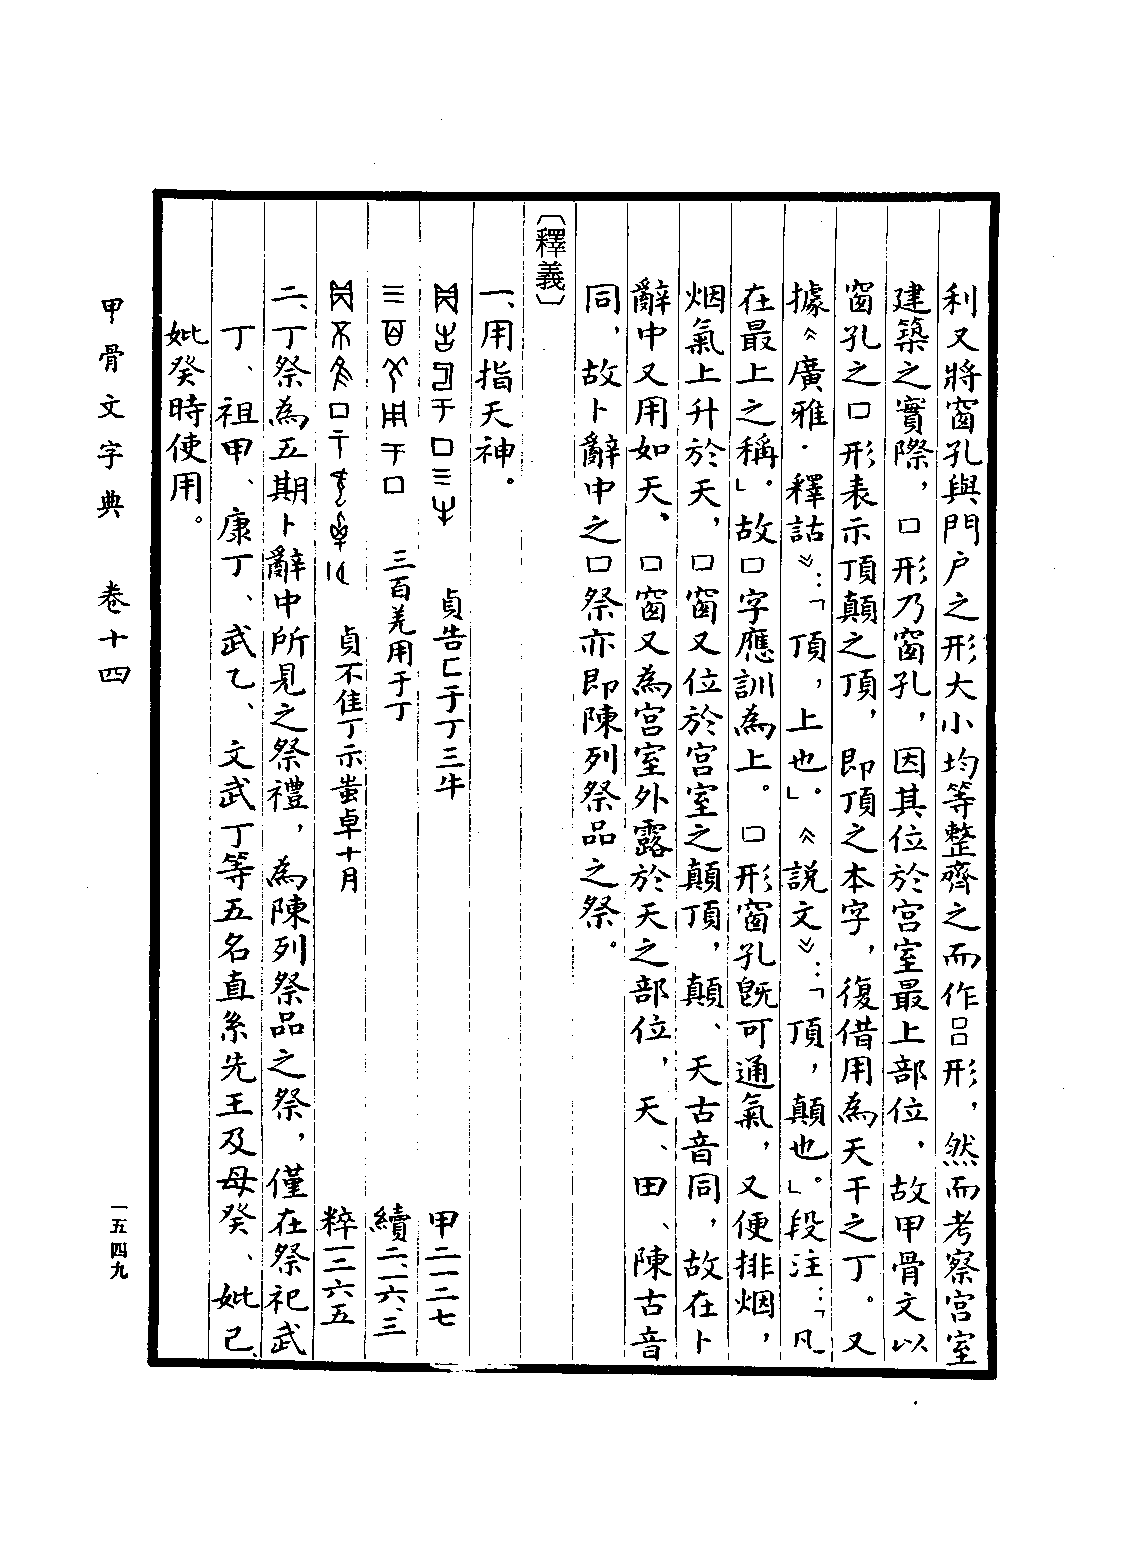 利又將窗孔與門户之形大小均等整齊之而作吕形，然而考察宫室
建築之實際，口形乃窗孔，因其位於宫室最上部位，故甲骨文以
窗孔之口形表示頂顛之頂，即頂之本字，復借用為天干之丁。又
據《廣雅·釋詁》：「頂，上也」。《説文》：「頂，顛也。」段注：「凡
在最上之稱」。故口字應訓為上。口形窗孔既可通氣，又便排烟，
烟氣上升於天，口窗又位於宫室之顛頂，顛、天古音同，故在卜
辭中又用如天、口窗又為宫室外露於天之部位，天、田、陳古音
同，故卜辭中之口祭亦即陳列祭品之祭。
〔釋義〕
一、用指天神。
貞告匚于丁三牛 甲二一二七
三百羌用于丁 續二、一六、三
貞不隹丁示蚩卓十月 粹一三六五
二、丁祭為五期卜辭中所見之祭禮，為陳列祭品之祭，僅在祭祀武
丁、祖甲、康丁、武乙、文武丁等五名直系先王及母癸、妣己、
妣癸時使用。
甲骨文字典 卷十四
一五四九